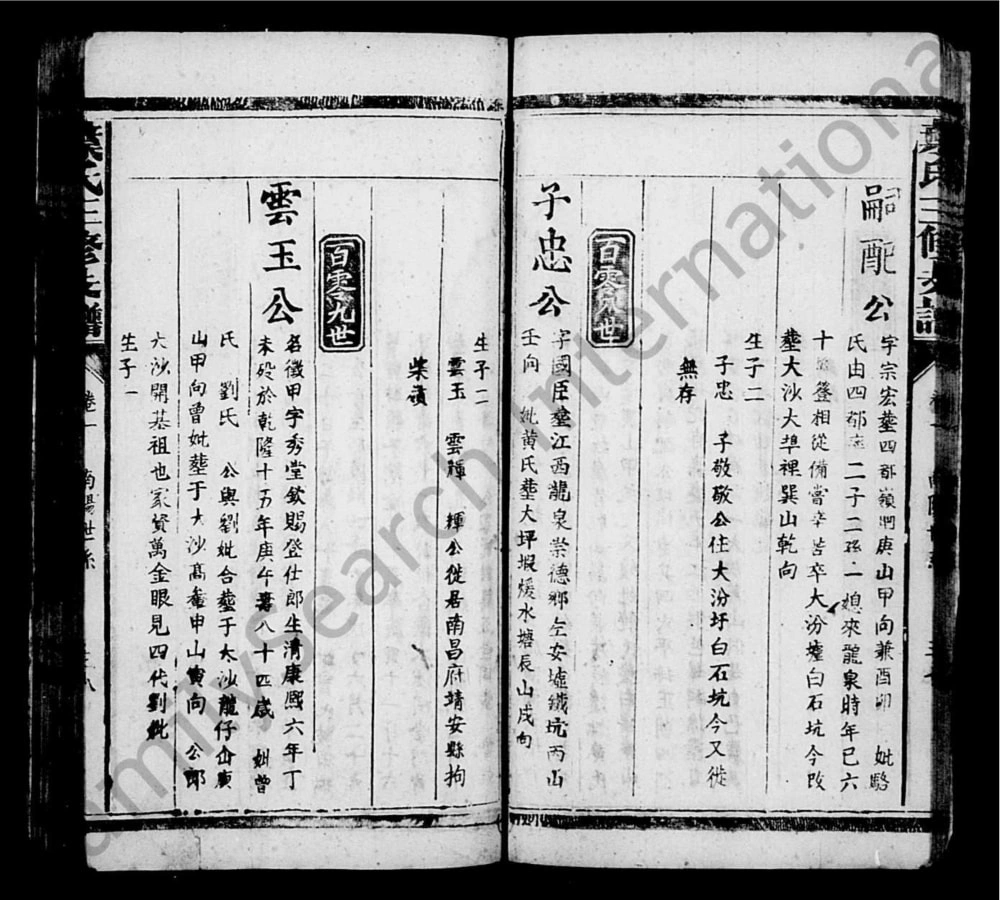 葉氏三修支譜
嗣配公
字宗宏塟四都嶺㵎庚山甲向兼酉卯 妣駱
氏由四都 二子二孫一媳來龍泉時年已六
十 簦相從備嘗辛苦卒大汾墟白石坑今改
塟大沙大埠裡巽山乾向
生子二
子忠 子敬敬公住大汾圩白石坑今又徙
無存
百零八世
子忠公
字國臣塟江西龍泉崇德鄉左安墟鐵坑丙山
壬向 妣黃氏塟大坪瑕煖水塘辰山戌向
生子二
雲玉 雲輝 輝公徙居南昌府靖安縣拘
柴
百零九世
雲玉公
名徵甲字秀堂欽賜登仕郎生清康熙六年丁
未歿於乾隆十五年庚午壽八十四歲 妣曾
氏 劉氏 公與劉妣合塟于大沙龍仔 庚
山甲向曾妣塟于大沙髙 申山寅向 公郎
大沙開基祖也家資萬金眼見四代劉妣
生子一
葉氏三修支譜
卷一
南陽世系
FamilySearch International